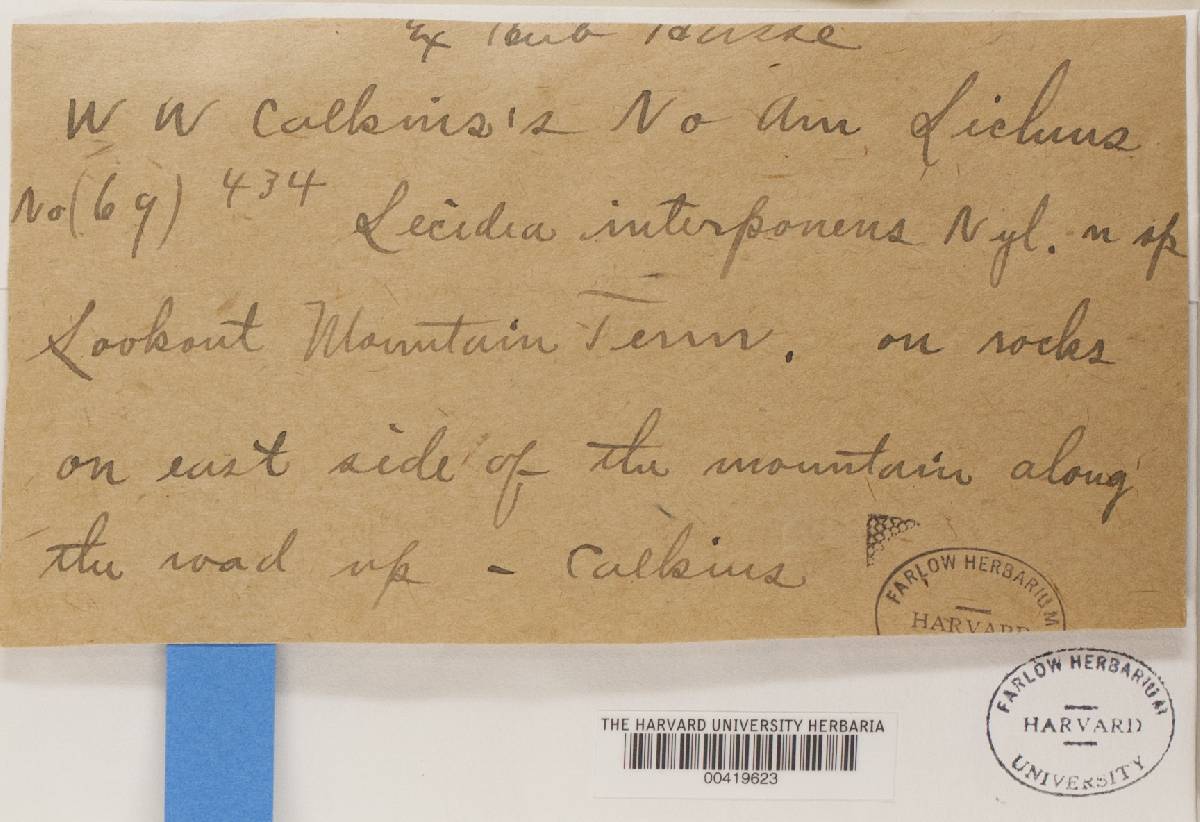 Ex Herb Hasse
W W Calkins's No Am Lichens
No (69) 434 Lecidea interponens Nyl. n sp
Lookout Mountain Tenn. on rocks
on east side of the mountain along
the road up - Calkins
FARLOW HERBARIUM
HARVARD
THE HARVARD UNIVERSITY HERBARIA
00419623
FARLOW HERBARIUM
HARVARD
UNIVERSITY